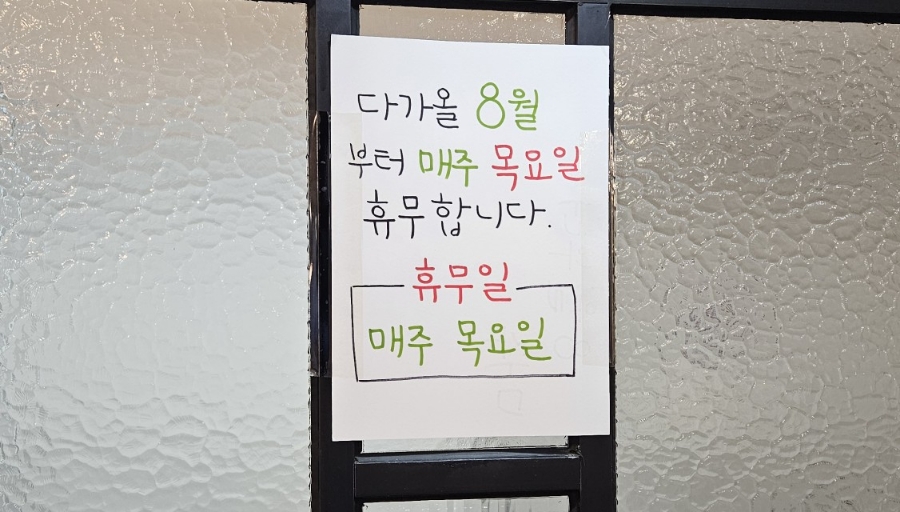 다가올 8월
부터 매주 목요일
휴무합니다.
휴무일
매주 목요일